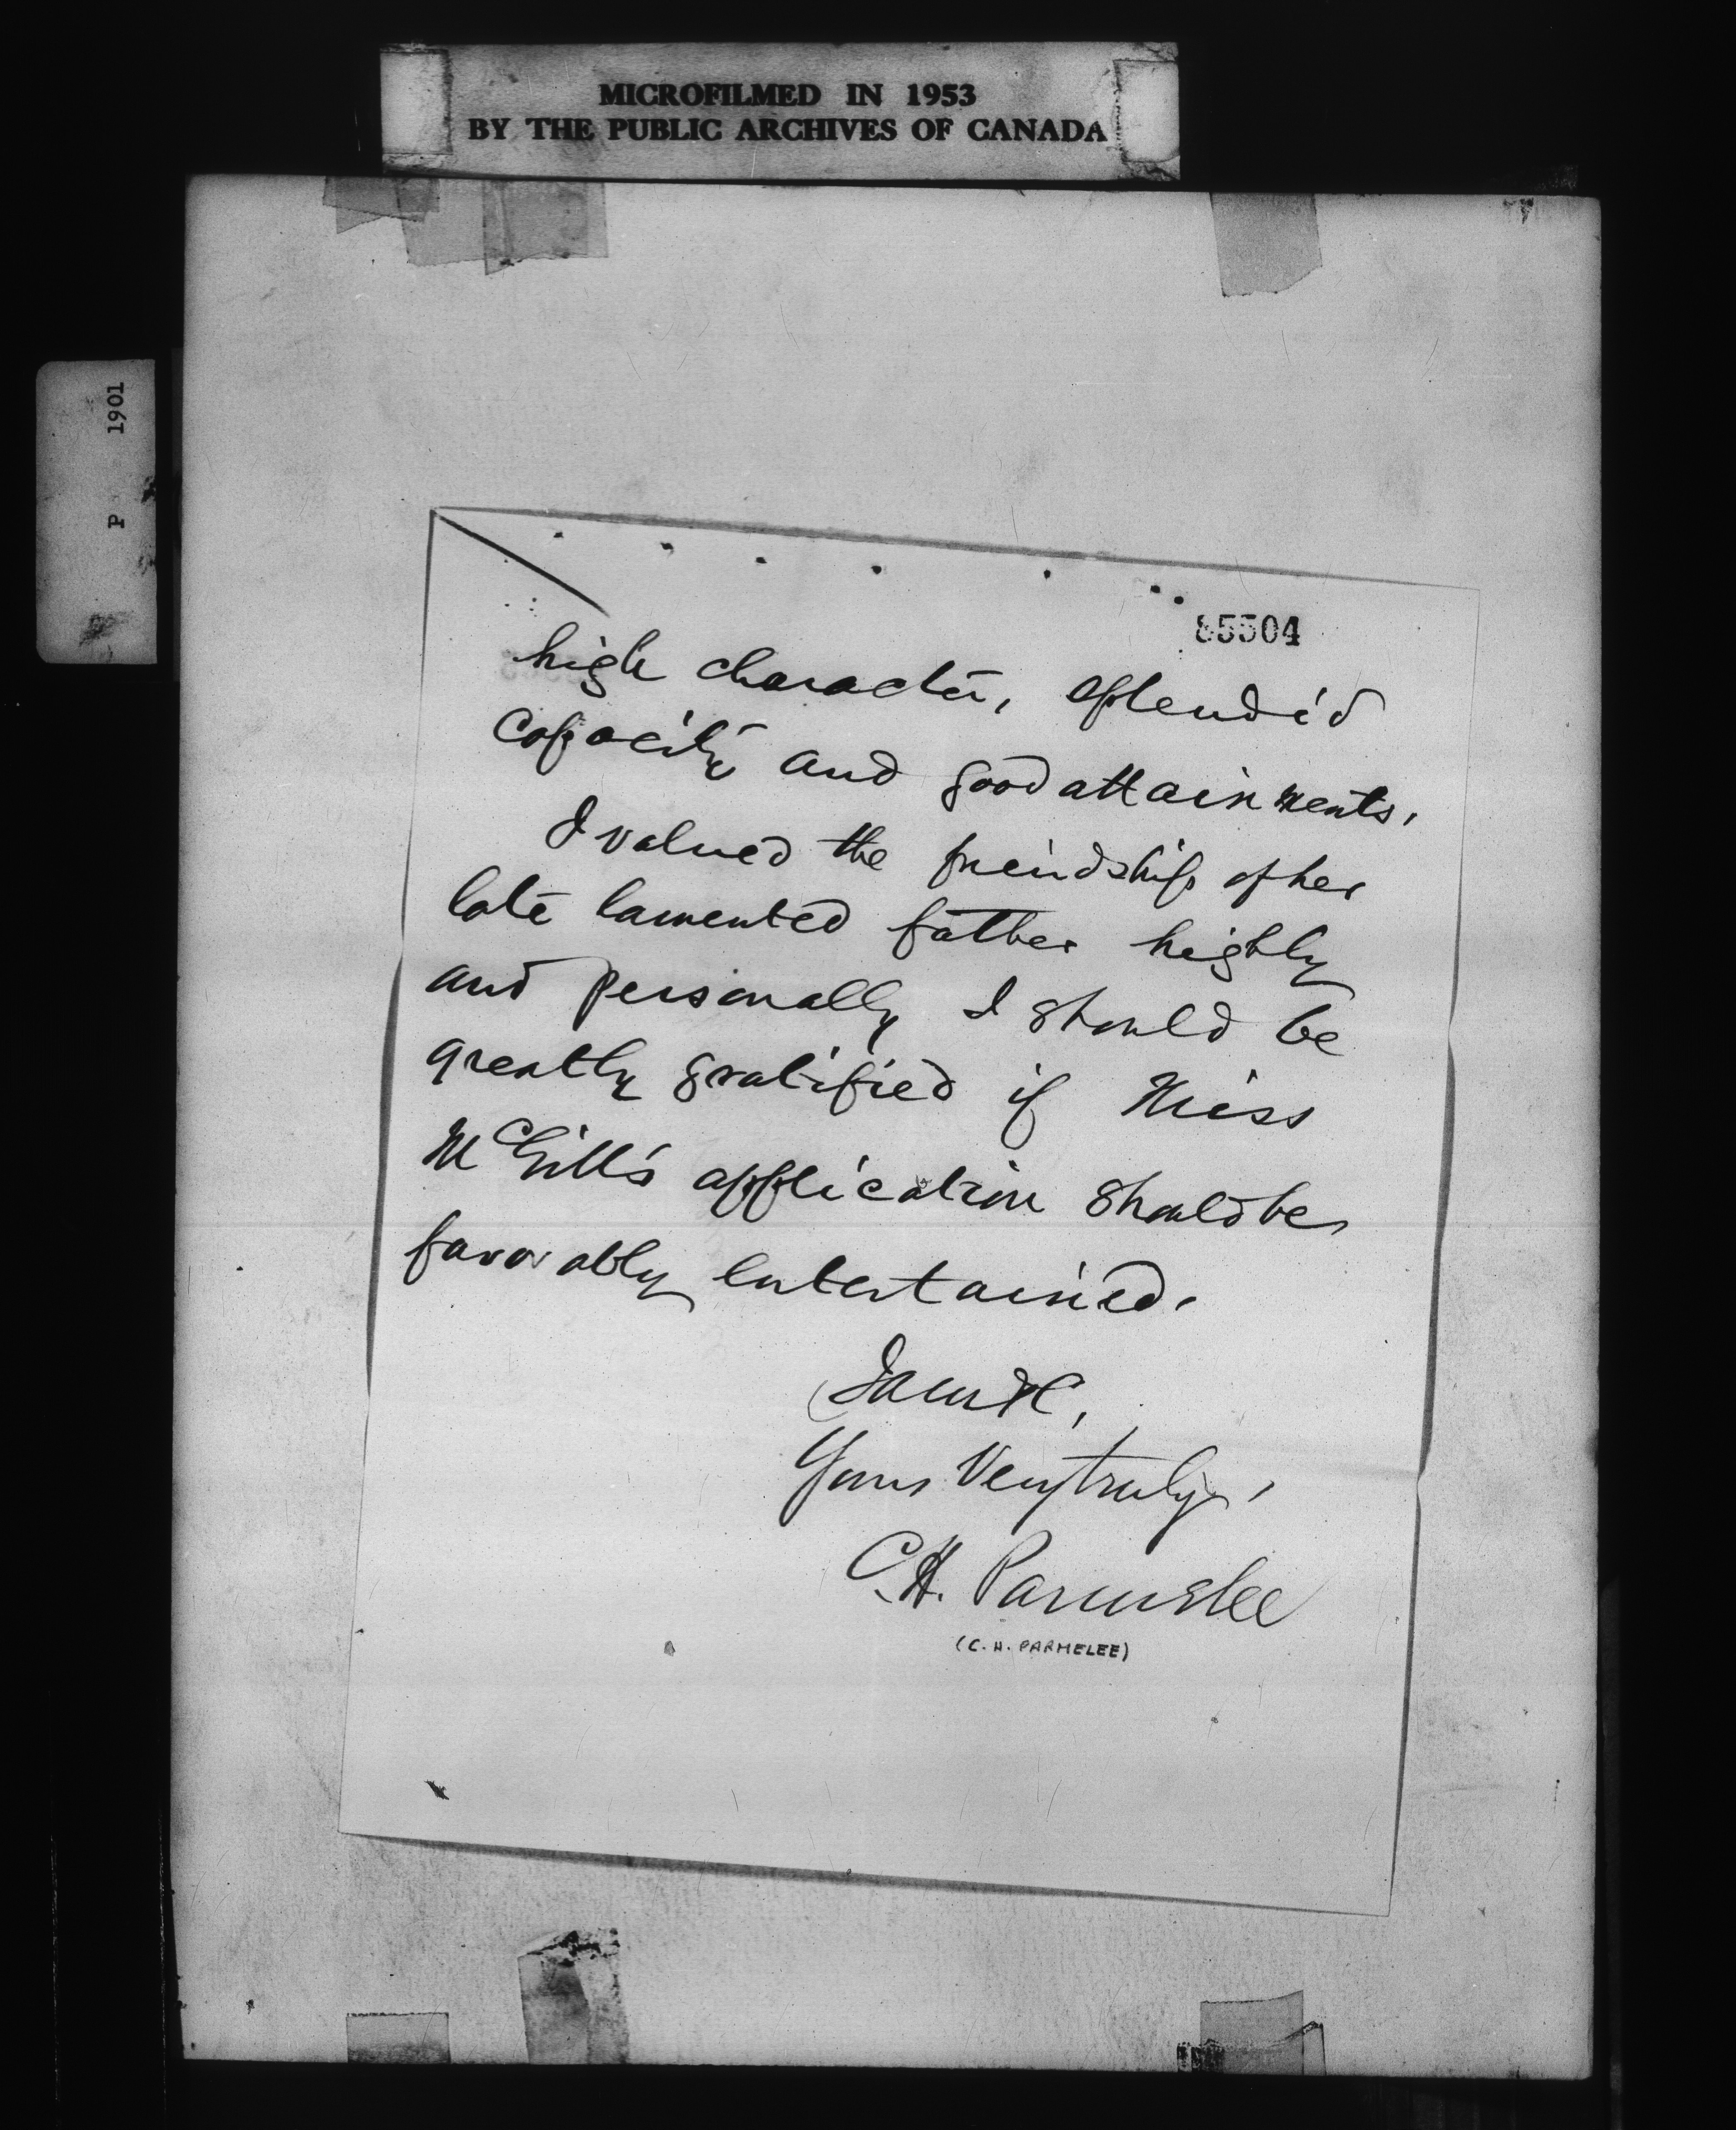 MICROFILMED IN 1953
BY THE PUBLIC ARCHIVES OF CANADA
P 1901
85504
high character, splendid
capacity and good attainments.
I valued the friendship of her
late lamented father highly
and personally I should be
greatly gratified if Miss
McGill's application should be
favorably entertained.
I am &c,
Yours Very truly,
C.H. Parmelee
(C. H. PARMELEE)